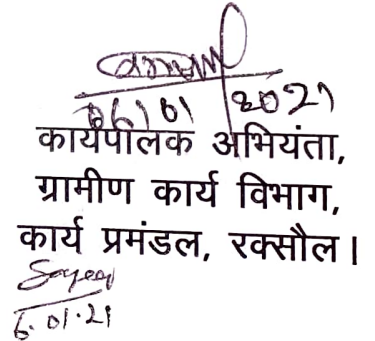 06/01/2021
कार्यपालक अभियंता,
ग्रामीण कार्य विभाग,
कार्य प्रमंडल, रक्सौल।
6.01.21